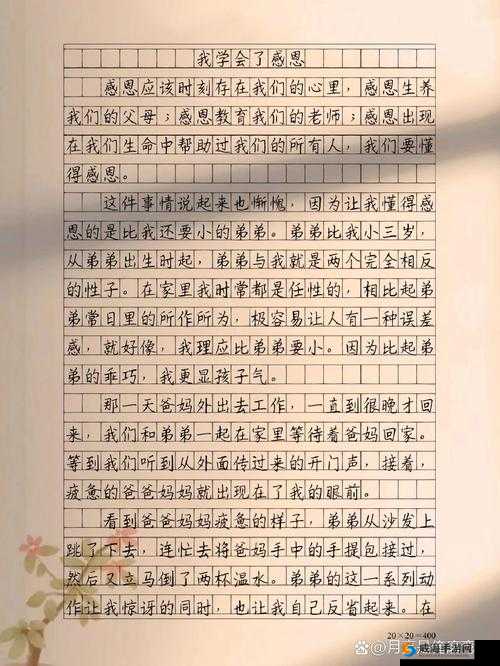 我学会了感恩
感恩应该时刻存在我们的心里，感恩生养
我们的父母；感恩教育我们的老师；感恩出现
在我们生命中帮助过我们的所有人，我们要懂
得感恩。
这件事情说起来也惭愧，因为让我懂得感
恩的是比我还要小的弟弟。弟弟比我小三岁，
从弟弟出生时起，弟弟与我就是两个完全相反
的性子。在家里我时常都是任性的，相比起弟
弟常日里的所作所为，极容易让人有一种误差
感，就好像，我理应比弟弟要小。因为比起弟
弟的乖巧，我更显孩子气。
那一天爸妈外出去工作，一直到很晚才回
来，我们和弟弟一起在家里等待着爸妈回家。
等到我们听到从外面传过来的开门声，接着，
疲惫的爸爸妈妈就出现在了我的眼前。
看到爸爸妈妈疲惫的样子，弟弟从沙发上
跳了下去，连忙去将爸妈手中的手提包接过，
然后又立马倒了两杯温水。弟弟的这一系列动
作让我惊讶的同时，也让我自己反省起来。在
20×20=400
威海手游网